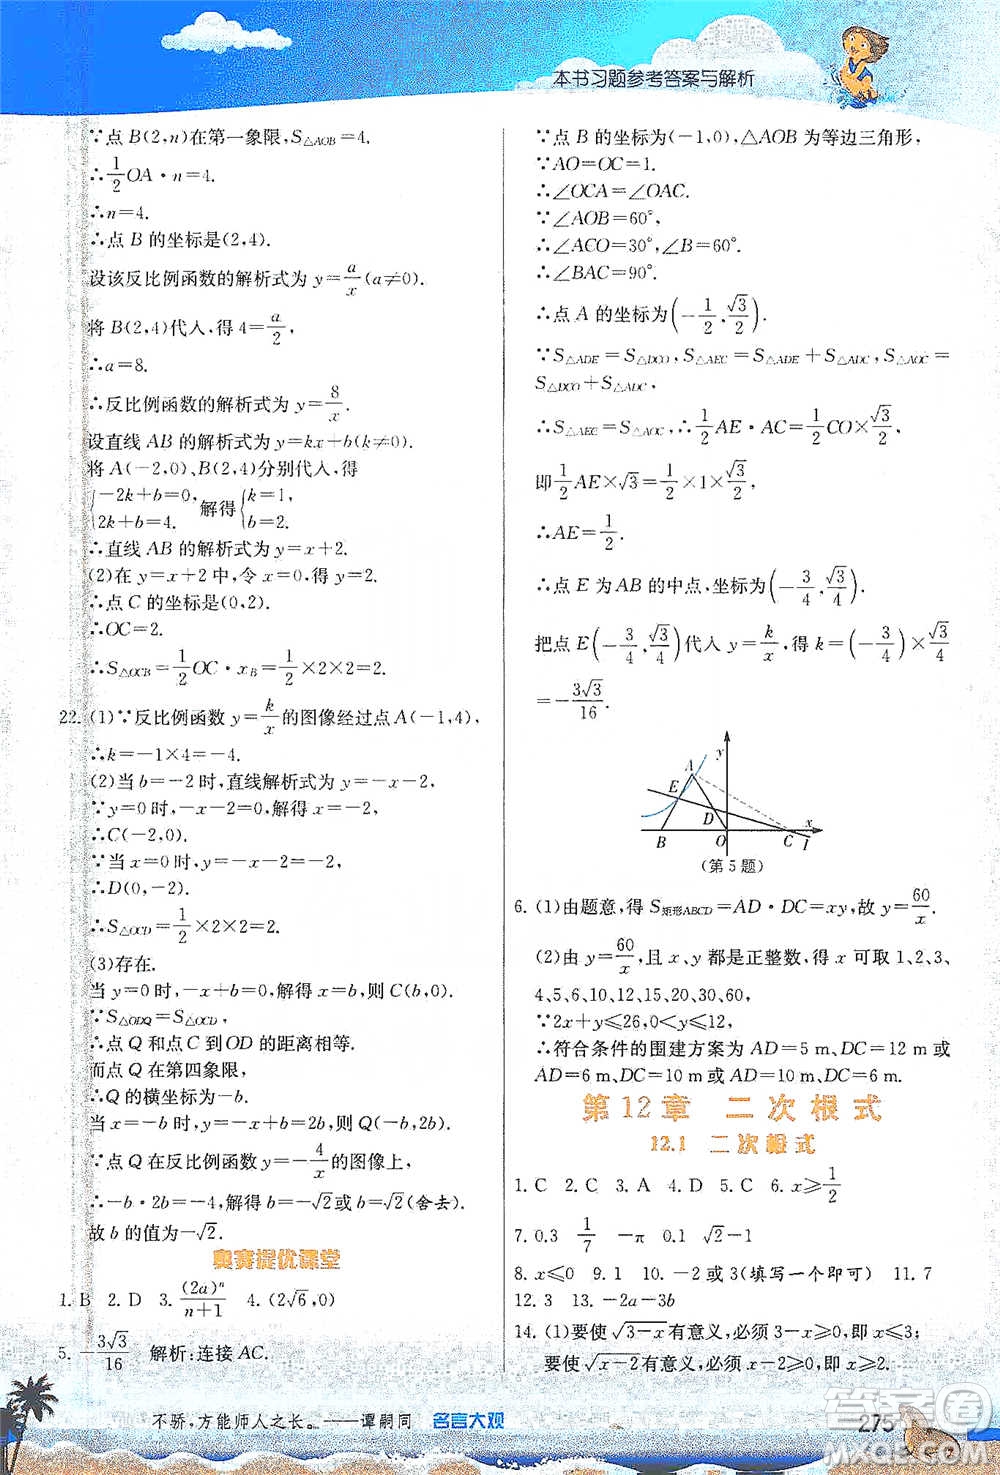 本书习题参考答案与解析
∵点 B(2,n)在第一象限,S△AOB=4.
∴1/2 OA·n=4.
∴n=4.
∴点 B 的坐标是(2,4).
设该反比例函数的解析式为 y=a/x(a≠0).
将 B(2,4)代入,得 4=a/2,
∴a=8.
∴反比例函数的解析式为 y=8/x.
设直线 AB 的解析式为 y=kx+b(k≠0).
将 A(-2,0)、B(2,4)分别代入,得
{-2k+b=0, 2k+b=4. 解得{k=1, b=2.
∴直线 AB 的解析式为 y=x+2.
(2)在 y=x+2 中,令 x=0,得 y=2.
∴点 C 的坐标是(0,2).
∴OC=2.
∴S△OCB=1/2 OC·xB=1/2×2×2=2.
22. (1)∵反比例函数 y=k/x的图像经过点 A(-1,4),
∴k=-1×4=-4.
(2)当 b=-2 时,直线解析式为 y=-x-2.
∵y=0 时,-x-2=0,解得 x=-2.
∴C(-2,0).
∵当 x=0 时,y=-x-2=-2.
∴D(0,-2).
∴S△OCD=1/2×2×2=2.
(3)存在.
当 y=0 时,-x+b=0,解得 x=b,则 C(b,0).
∵S△ODQ=S△OCD,
∴点 Q 和点 C 到 OD 的距离相等.
而点 Q 在第四象限,
∴点 Q 的横坐标为-b.
当 x=-b 时,y=-x+b=2b,则 Q(-b,2b).
∵点 Q 在反比例函数 y=-4/x的图像上,
∴-b·2b=-4,解得 b=-√2或 b=√2(舍去).
故 b 的值为-√2.
奥赛提优课堂
1. B 2. D 3. (2a)ⁿ/(n+1) 4. (2√6,0)
5. -3√3/16 解析:连接 AC.
∵点 B 的坐标为(-1,0),△AOB 为等边三角形,
∵AO=OC=1.
∴∠OCA=∠OAC.
∵∠AOB=60°,
∴∠ACO=30°,∠B=60°.
∴∠BAC=90°.
∴点 A 的坐标为(-1/2,√3/2).
∵S△ADE=S△DCO,S△AEC=S△ADE+S△ADC,S△AOC=
S△DCO+S△ADC,
∴S△AEC=S△AOC,∴1/2 AE·AC=1/2 CO×√3/2,
即1/2 AE×√3=1/2×1×√3/2.
∴AE=1/2.
∴点 E 为 AB 的中点,坐标为(-3/4,√3/4).
把点 E(-3/4,√3/4)代入 y=k/x,得 k=(-3/4)×√3/4
=-3√3/16.
y
A
E
D
x
B O C l
(第 5 题)
6. (1)由题意,得 S矩形ABCD=AD·DC=xy,故 y=60/x.
(2)由 y=60/x,且 x、y 都是正整数,得 x 可取 1、2、3、
4、5、6、10、12、15、20、30、60.
∵2x+y≤26,0<y≤12,
∴符合条件的围建方案为 AD=5 m、DC=12 m 或
AD=6 m、DC=10 m 或 AD=10 m、DC=6 m.
第 12 章 二次根式
12.1 二次根式
1. C 2. C 3. A 4. D 5. C 6. x≥1/2
7. 0.3 1/7 -π √2-1
8. x≤0 9. 1 10. -2 或 3(填写一个即可) 11. 7
12. 3 13. -2a-3b
14. (1)要使√3-x有意义,必须 3-x≥0,即 x≤3;
要使√x-2有意义,必须 x-2≥0,即 x≥2.
不骄,方能师人之长。——谭嗣同 名言大观
275
答案圈